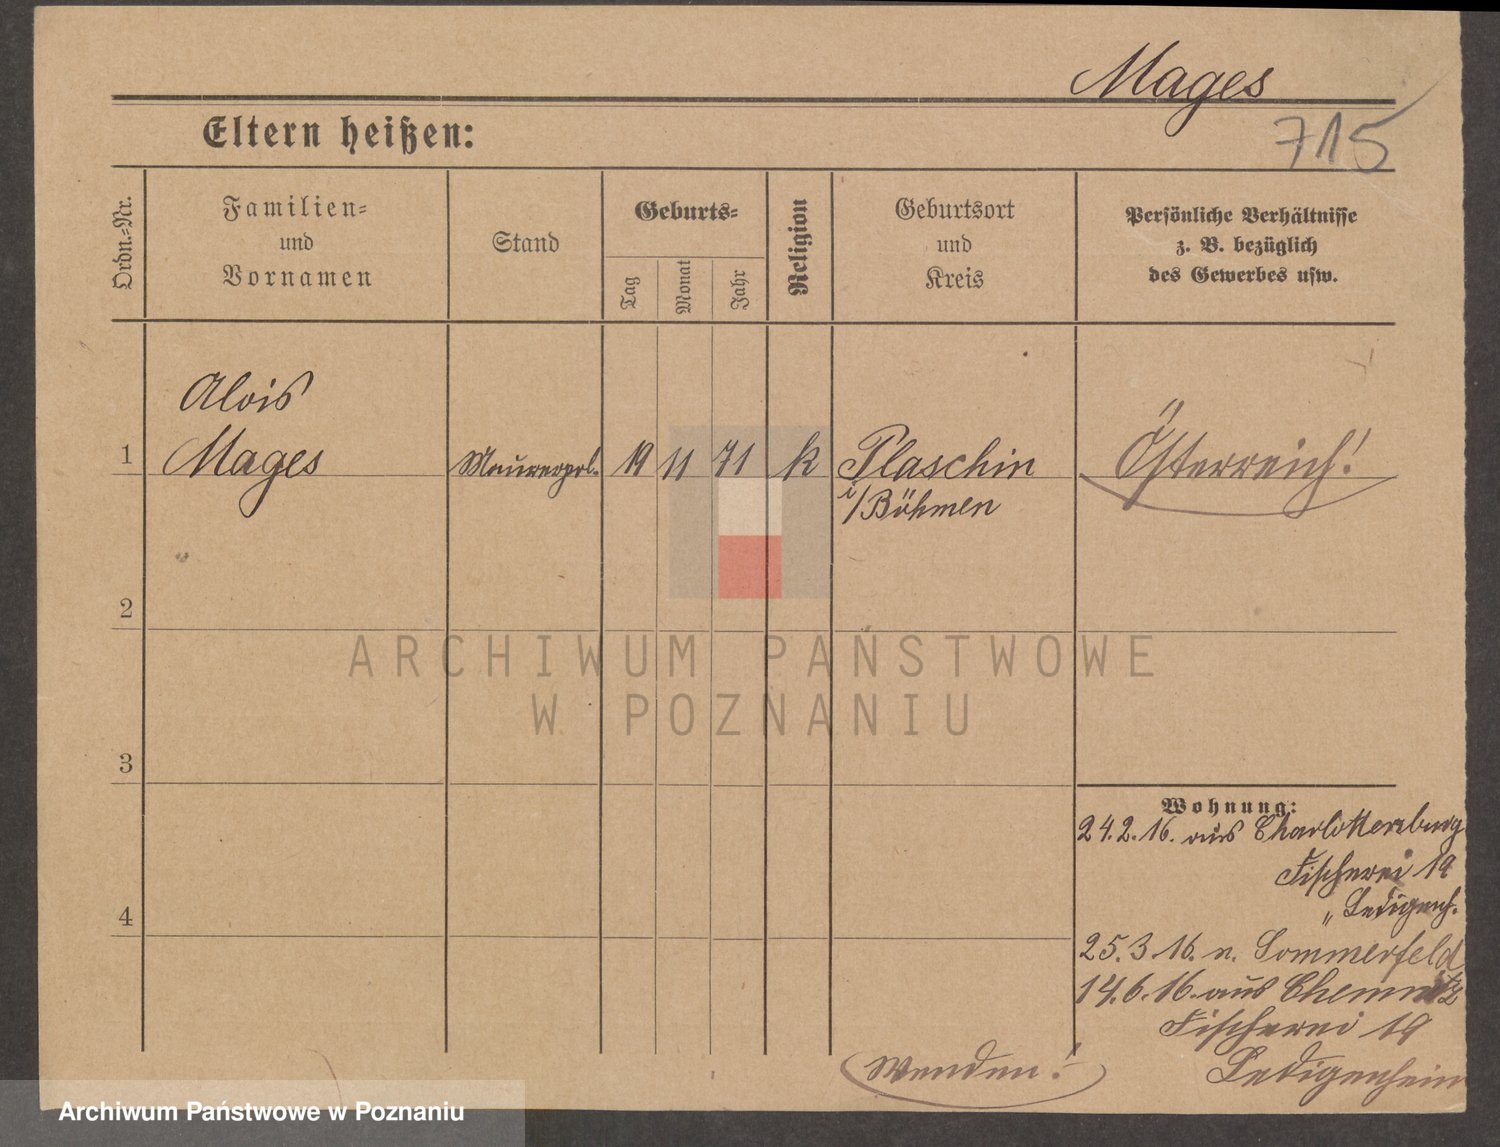 Mages
715
Eltern heißen:
Ordn.-Nr.
Familien-
und
Vornamen
Stand
Geburts-
Tag
Monat
Jahr
Religion
Geburtsort
und
Kreis
Persönliche Verhältnisse
z. B. bezüglich
des Gewerbes usw.
Alois
1 Mages Maurerpol. 19 11 71 k Plaschin Österreich!
i/Böhmen
2
ARCHIWUM PAŃSTWOWE
W POZNANIU
3
Wohnung:
24.2.16. aus Charlottenburg
Fischerei 19
" Ledigenh.
4
25.3.16. n. Sommerfeld
14.6.16. aus Chemnitz
Fischerei 19
Wenden!
Ledigenheim
Archiwum Państwowe w Poznaniu